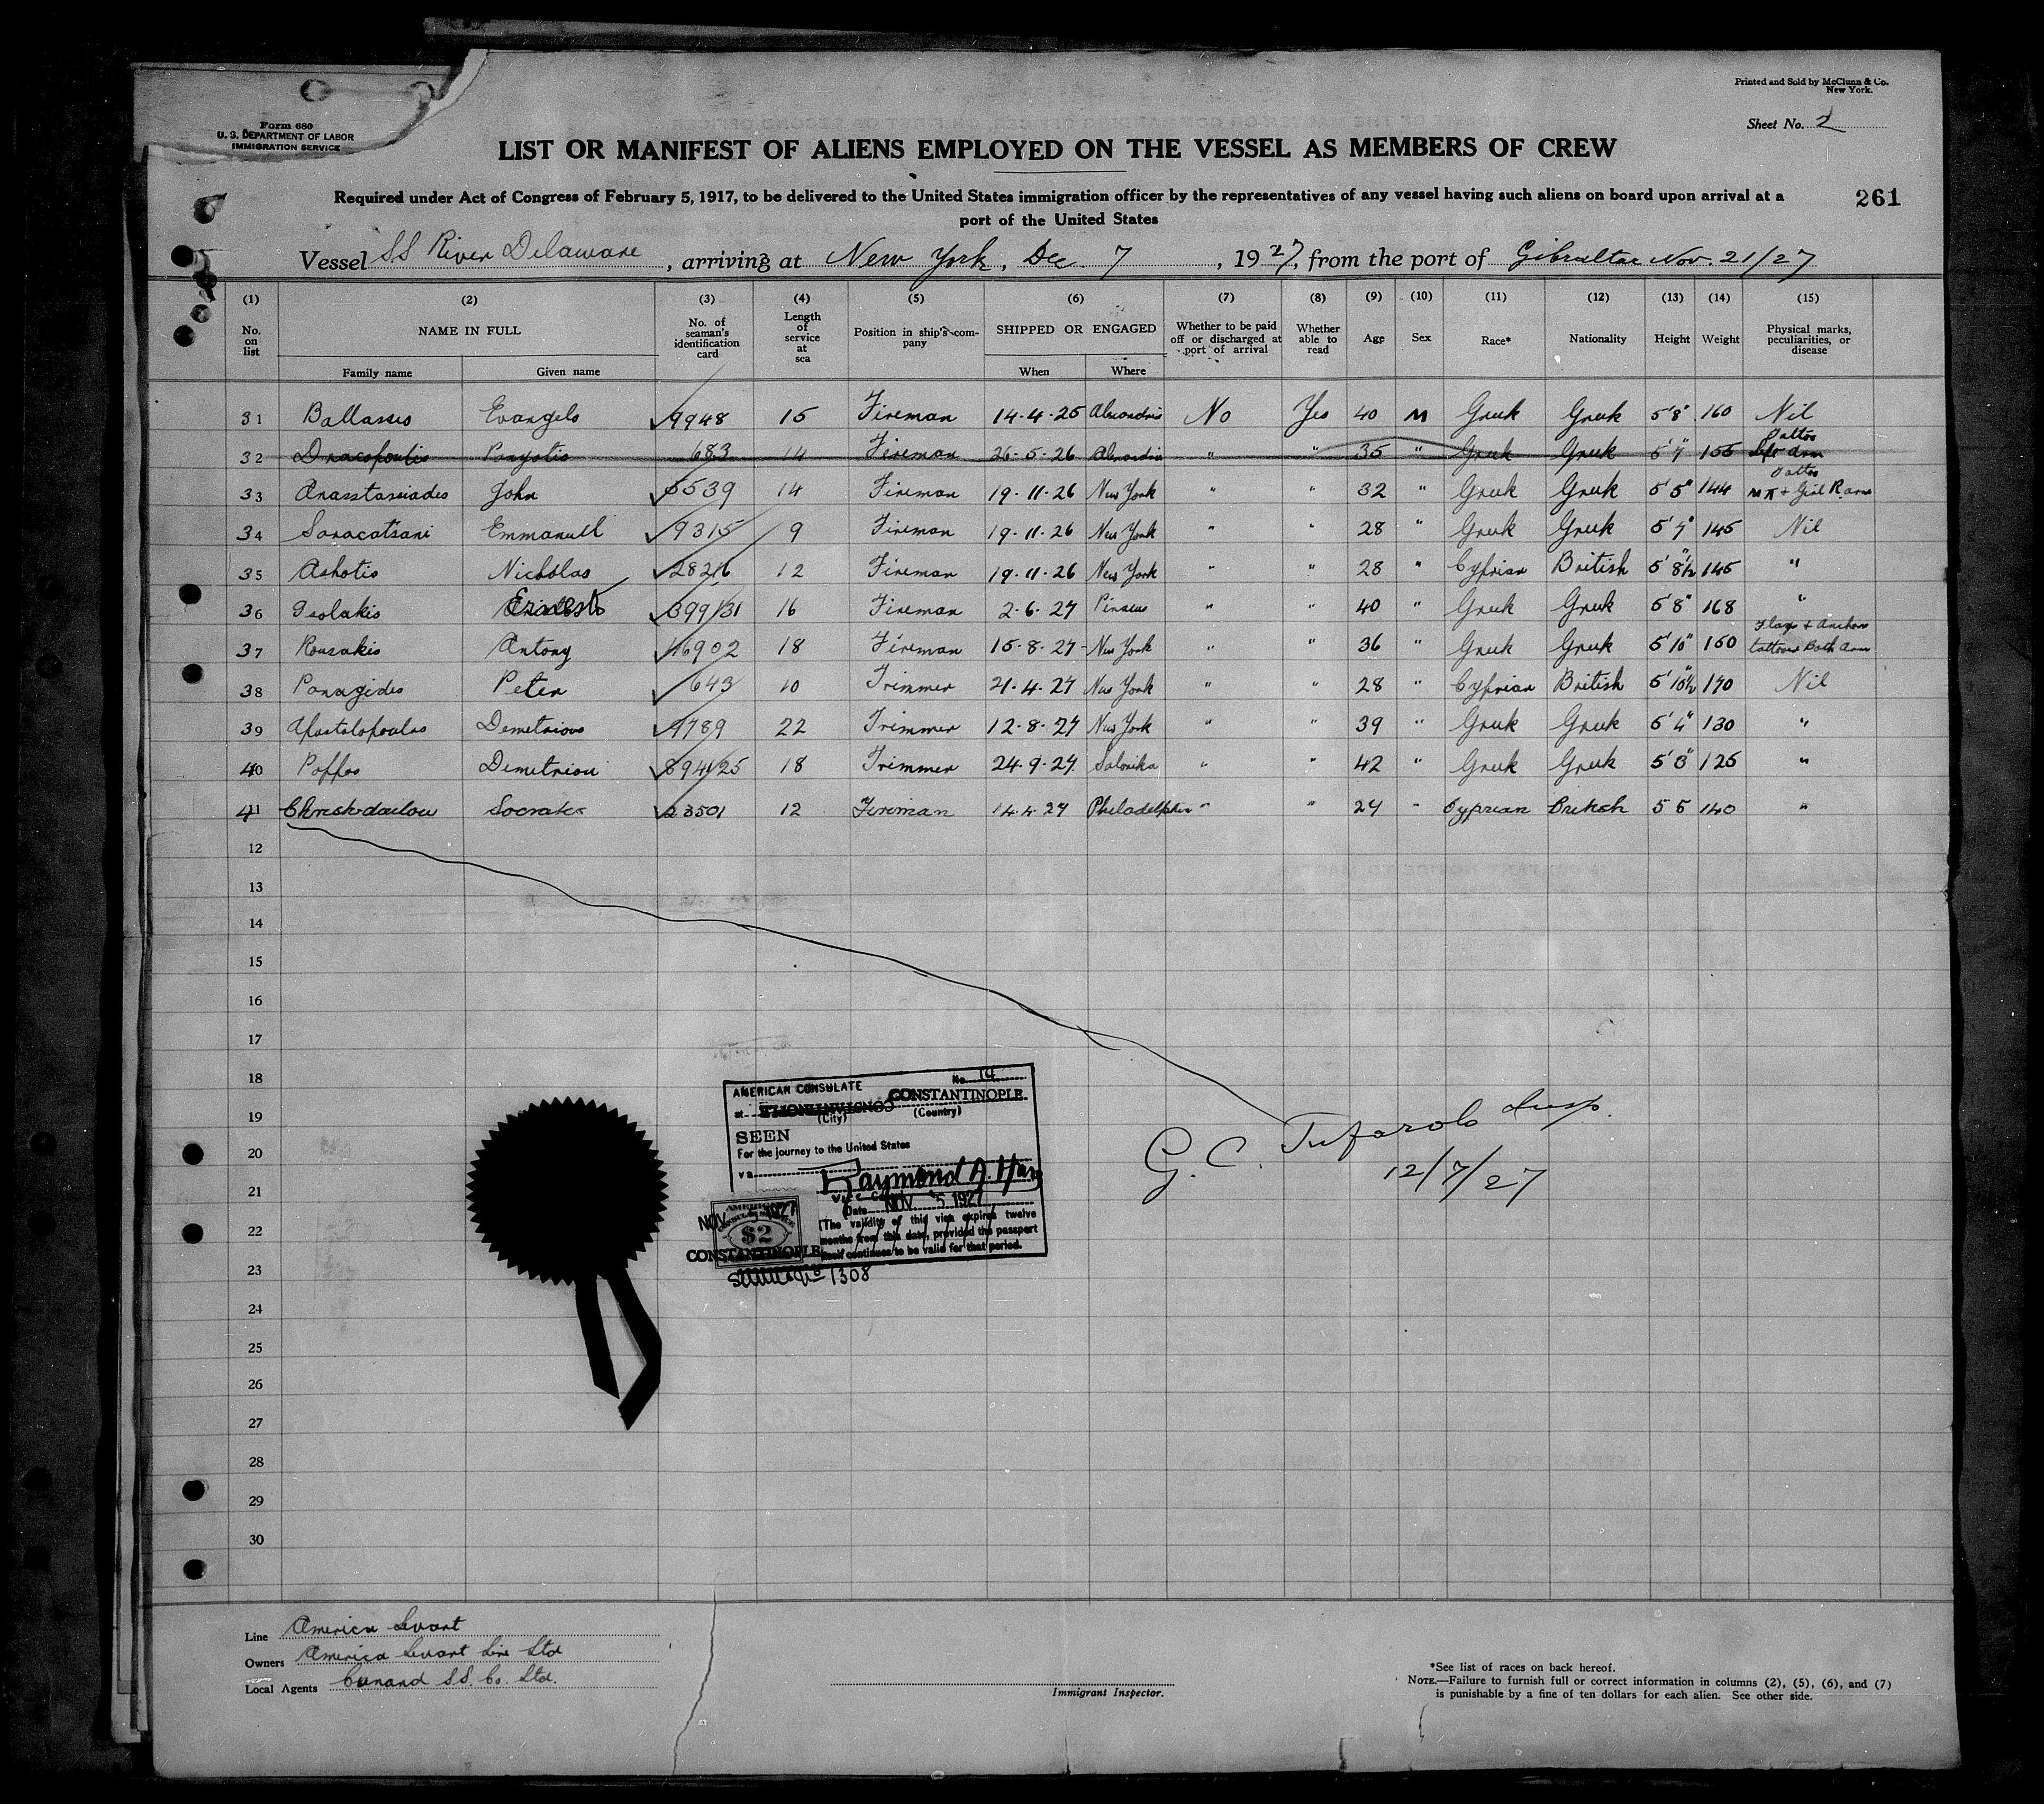 Printed and Sold by McClunn & Co.
New York.
Form 680
U. S. DEPARTMENT OF LABOR
IMMIGRATION SERVICE
Sheet No. 2
LIST OR MANIFEST OF ALIENS EMPLOYED ON THE VESSEL AS MEMBERS OF CREW
Required under Act of Congress of February 5, 1917, to be delivered to the United States immigration officer by the representatives of any vessel having such aliens on board upon arrival at a
port of the United States
261
Vessel SS River Delaware, arriving at New York, Dec. 7, 1927, from the port of Gibraltar Nov. 21/27
(1) (2) (3) (4) (5) (6) (7) (8) (9) (10) (11) (12) (13) (14) (15)
No. on list NAME IN FULL No. of seaman's identification card Length of service at sea Position in ship's company SHIPPED OR ENGAGED Whether to be paid off or discharged at port of arrival Whether able to read Age Sex Race* Nationality Height Weight Physical marks, peculiarities, or disease
Family name Given name When Where
31 Ballassis Evangelo 9948 15 Fireman 14-4-25 Alexandria No Yes 40 M Greek Greek 5'8" 160 Nil
32 Dracopoulis Panyotis 683 14 Fireman 26-5-26 Alexandria " " 35 " Greek Greek 5'7" 155 Tattoo left arm
33 Anasstassiades John 5539 14 Fireman 19-11-26 New York " " 32 " Greek Greek 5'5" 144 Tattoo + Girl R. arm
34 Saracatsani Emmanuell 9315 9 Fireman 19-11-26 New York " " 28 " Greek Greek 5'7" 145 Nil
35 Ashotis Nicholas 28216 12 Fireman 19-11-26 New York " " 28 " Cyprian British 5'8"½ 145 "
36 Tsolakis Ernesto 399/31 16 Fireman 2-6-27 Piraeus " " 40 " Greek Greek 5'8" 168 "
37 Rousakis Antony 16902 18 Fireman 15-8-27 New York " " 36 " Greek Greek 5'10" 150 Flags + Anchors tattoos Both Arm
38 Panagides Peter 643 10 Trimmer 21-4-27 New York " " 28 " Cyprian British 5'10"½ 170 Nil
39 Apostolopoulos Demetrious 4789 22 Trimmer 12-8-27 New York " " 39 " Greek Greek 5'4" 130 "
40 Pappas Dimitriou 894/25 18 Trimmer 24-9-27 Salonika " " 42 " Greek Greek 5'3" 125 "
41 Christodoulou Socrates 23501 12 Fireman 14-4-27 Philadelphia " " 24 " Cyprian British 5 5 140 "
12
13
14
15
16
17
18
19
20
21
22
23
24
25
26
27
28
29
30
AMERICAN CONSULATE No. 14
at CONSTANTINOPLE CONSTANTINOPLE
(City) (Country)
SEEN
For the journey to the United States
via
Raymond A. Hare
Vice Consul
Date NOV 5 1927
(The validity of this visa expires twelve
months from this date, provided the passport
itself continues to be valid for that period.
AMERICAN
NOV 5 1927
$2
CONSTANTINOPLE
1308
G. C. Tufarolo Insp.
12/7/27
Line America Levant
Owners America Levant Line Ltd
Local Agents Cunard S.S. Co. Ltd.
Immigrant Inspector.
*See list of races on back hereof.
NOTE.—Failure to furnish full or correct information in columns (2), (5), (6), and (7)
is punishable by a fine of ten dollars for each alien. See other side.